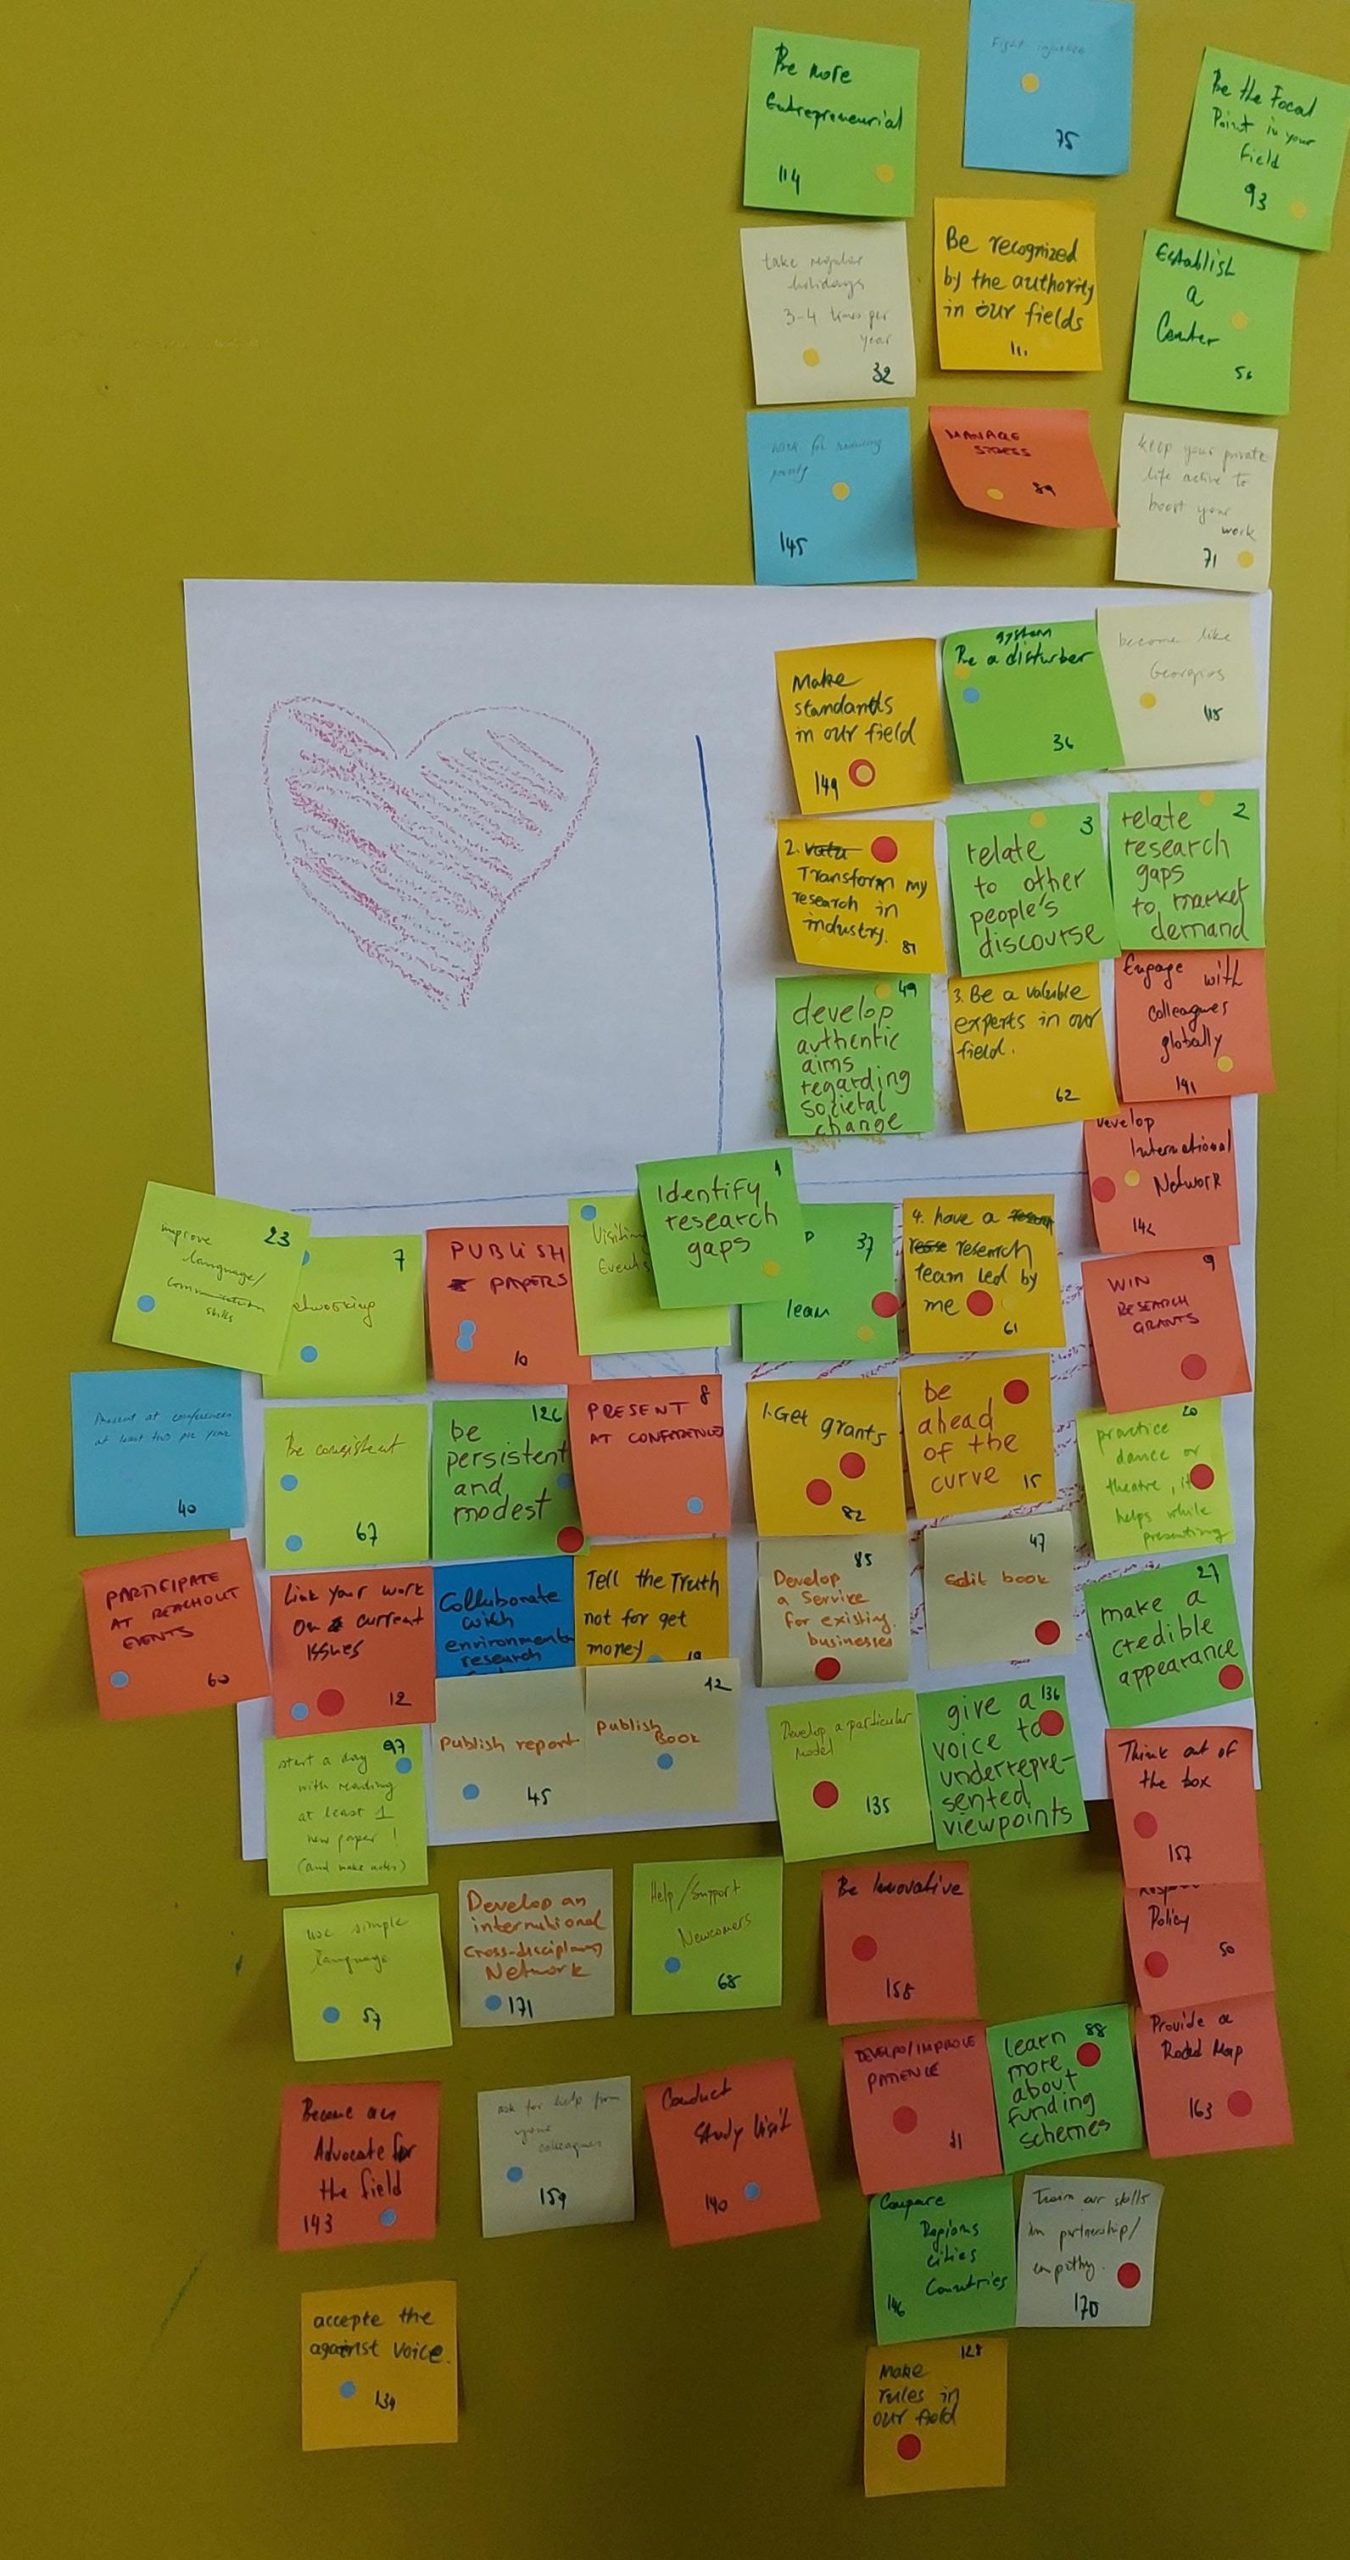 Be more
Entrepreneurial
114
Fight injustice
75
Be the Focal
Point in your
Field
93
take regular
holidays
3-4 times per
year
32
Be recognized
by the authority
in our fields
111
Establish
a
Center
56
work for reducing
poverty
145
MANAGE
STRESS
89
keep your private
life active to
boost your
work
71
Make
standards
in our field
149
system
Be a disturber
36
become like
Georgios
115
2.
Transform my
research in
industry.
81
3
relate
to other
people's
discourse
2
relate
research
gaps
to market
demand
49
develop
authentic
aims
regarding
societal
change
3. Be a valuable
experts in our
field.
62
Engage with
colleagues
globally
141
Develop
International
Network
142
23
improve
language/
communication
skills
7
etworking
PUBLISH
PAPERS
10
Visiting
Events
1
Identify
research
gaps
37
team
4. have a
research
team led by
me
61
9
WIN
RESEARCH
GRANTS
Present at conferences
at least two per year
40
Be consistent
67
126
be
persistent
and
modest
8
PRESENT
AT CONFERENCES
1. Get grants
82
be
ahead
of the
curve
15
20
practice
dance or
theatre, it
helps while
presenting
PARTICIPATE
AT REACHOUT
EVENTS
60
Link your work
on current
issues
12
Collaborate
with
environmental
research
Tell the Truth
not for get
money
19
85
Develop
a service
for existing
businesses
47
edit book
27
make a
credible
appearance
97
start a day
with reading
at least 1
new paper!
(and make notes)
Publish report
45
42
Publish
Book
Develop a particular
model
135
136
give a
voice to
underrepre-
sented
viewpoints
Think out of
the box
157
use simple
language
57
Develop an
international
cross-disciplinary
Network
171
Help/Support
Newcomers
68
Be Innovative
158
Policy
50
DEVELOP/IMPROVE
PATIENCE
31
88
learn
more
about
funding
schemes
Provide a
Road Map
163
Become an
Advocate for
the field
143
ask for help from
your
colleagues
159
Conduct
Study Visit
140
Compare
Regions
cities
Countries
146
Train our skills
in partnership/
empathy.
170
accepte the
against voice.
134
128
Make
rules in
our field